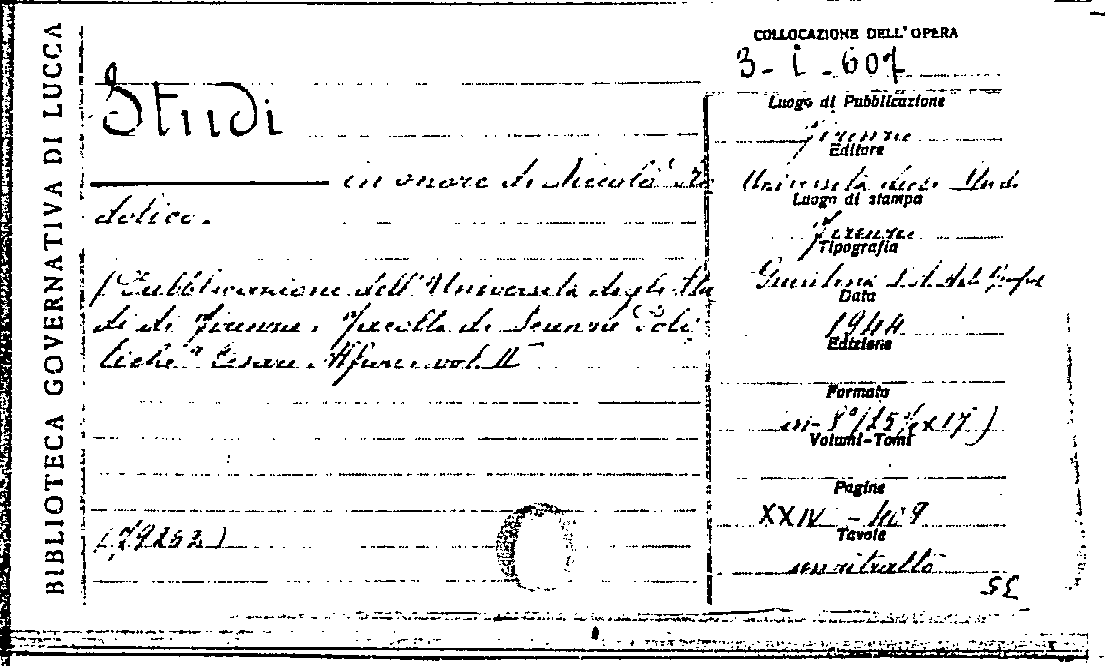 BIBLIOTECA GOVERNATIVA DI LUCCA
Studi
in onore di Nicolò Ro
dolico.
(Pubblicazione dell'Università degli Stu
di di Firenze. Facoltà di Scienze Poli
tiche "Cesare Alfieri" vol. II
(79252)
COLLOCAZIONE DELL'OPERA
3-i-607
Luogo di Pubblicazione
Firenze
Editore
Università degli Studi
Luogo di stampa
Firenze
Tipografia
Data
1944
Edizione
Formato
in-8°
Volumi-Tomi
Pagine
XXIV -
Tavole
un ritratto